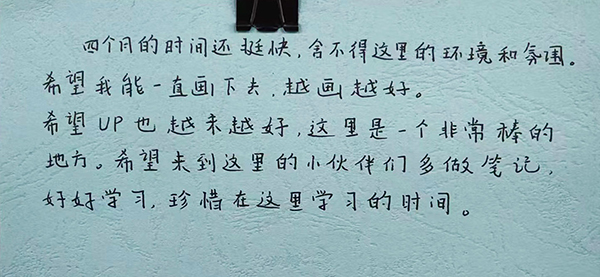 四个月的时间还挺快，舍不得这里的环境和氛围。
希望我能一直画下去，越画越好。
希望UP也越来越好，这里是一个非常棒的
地方。希望来到这里的小伙伴们多做笔记，
好好学习，珍惜在这里学习的时间。